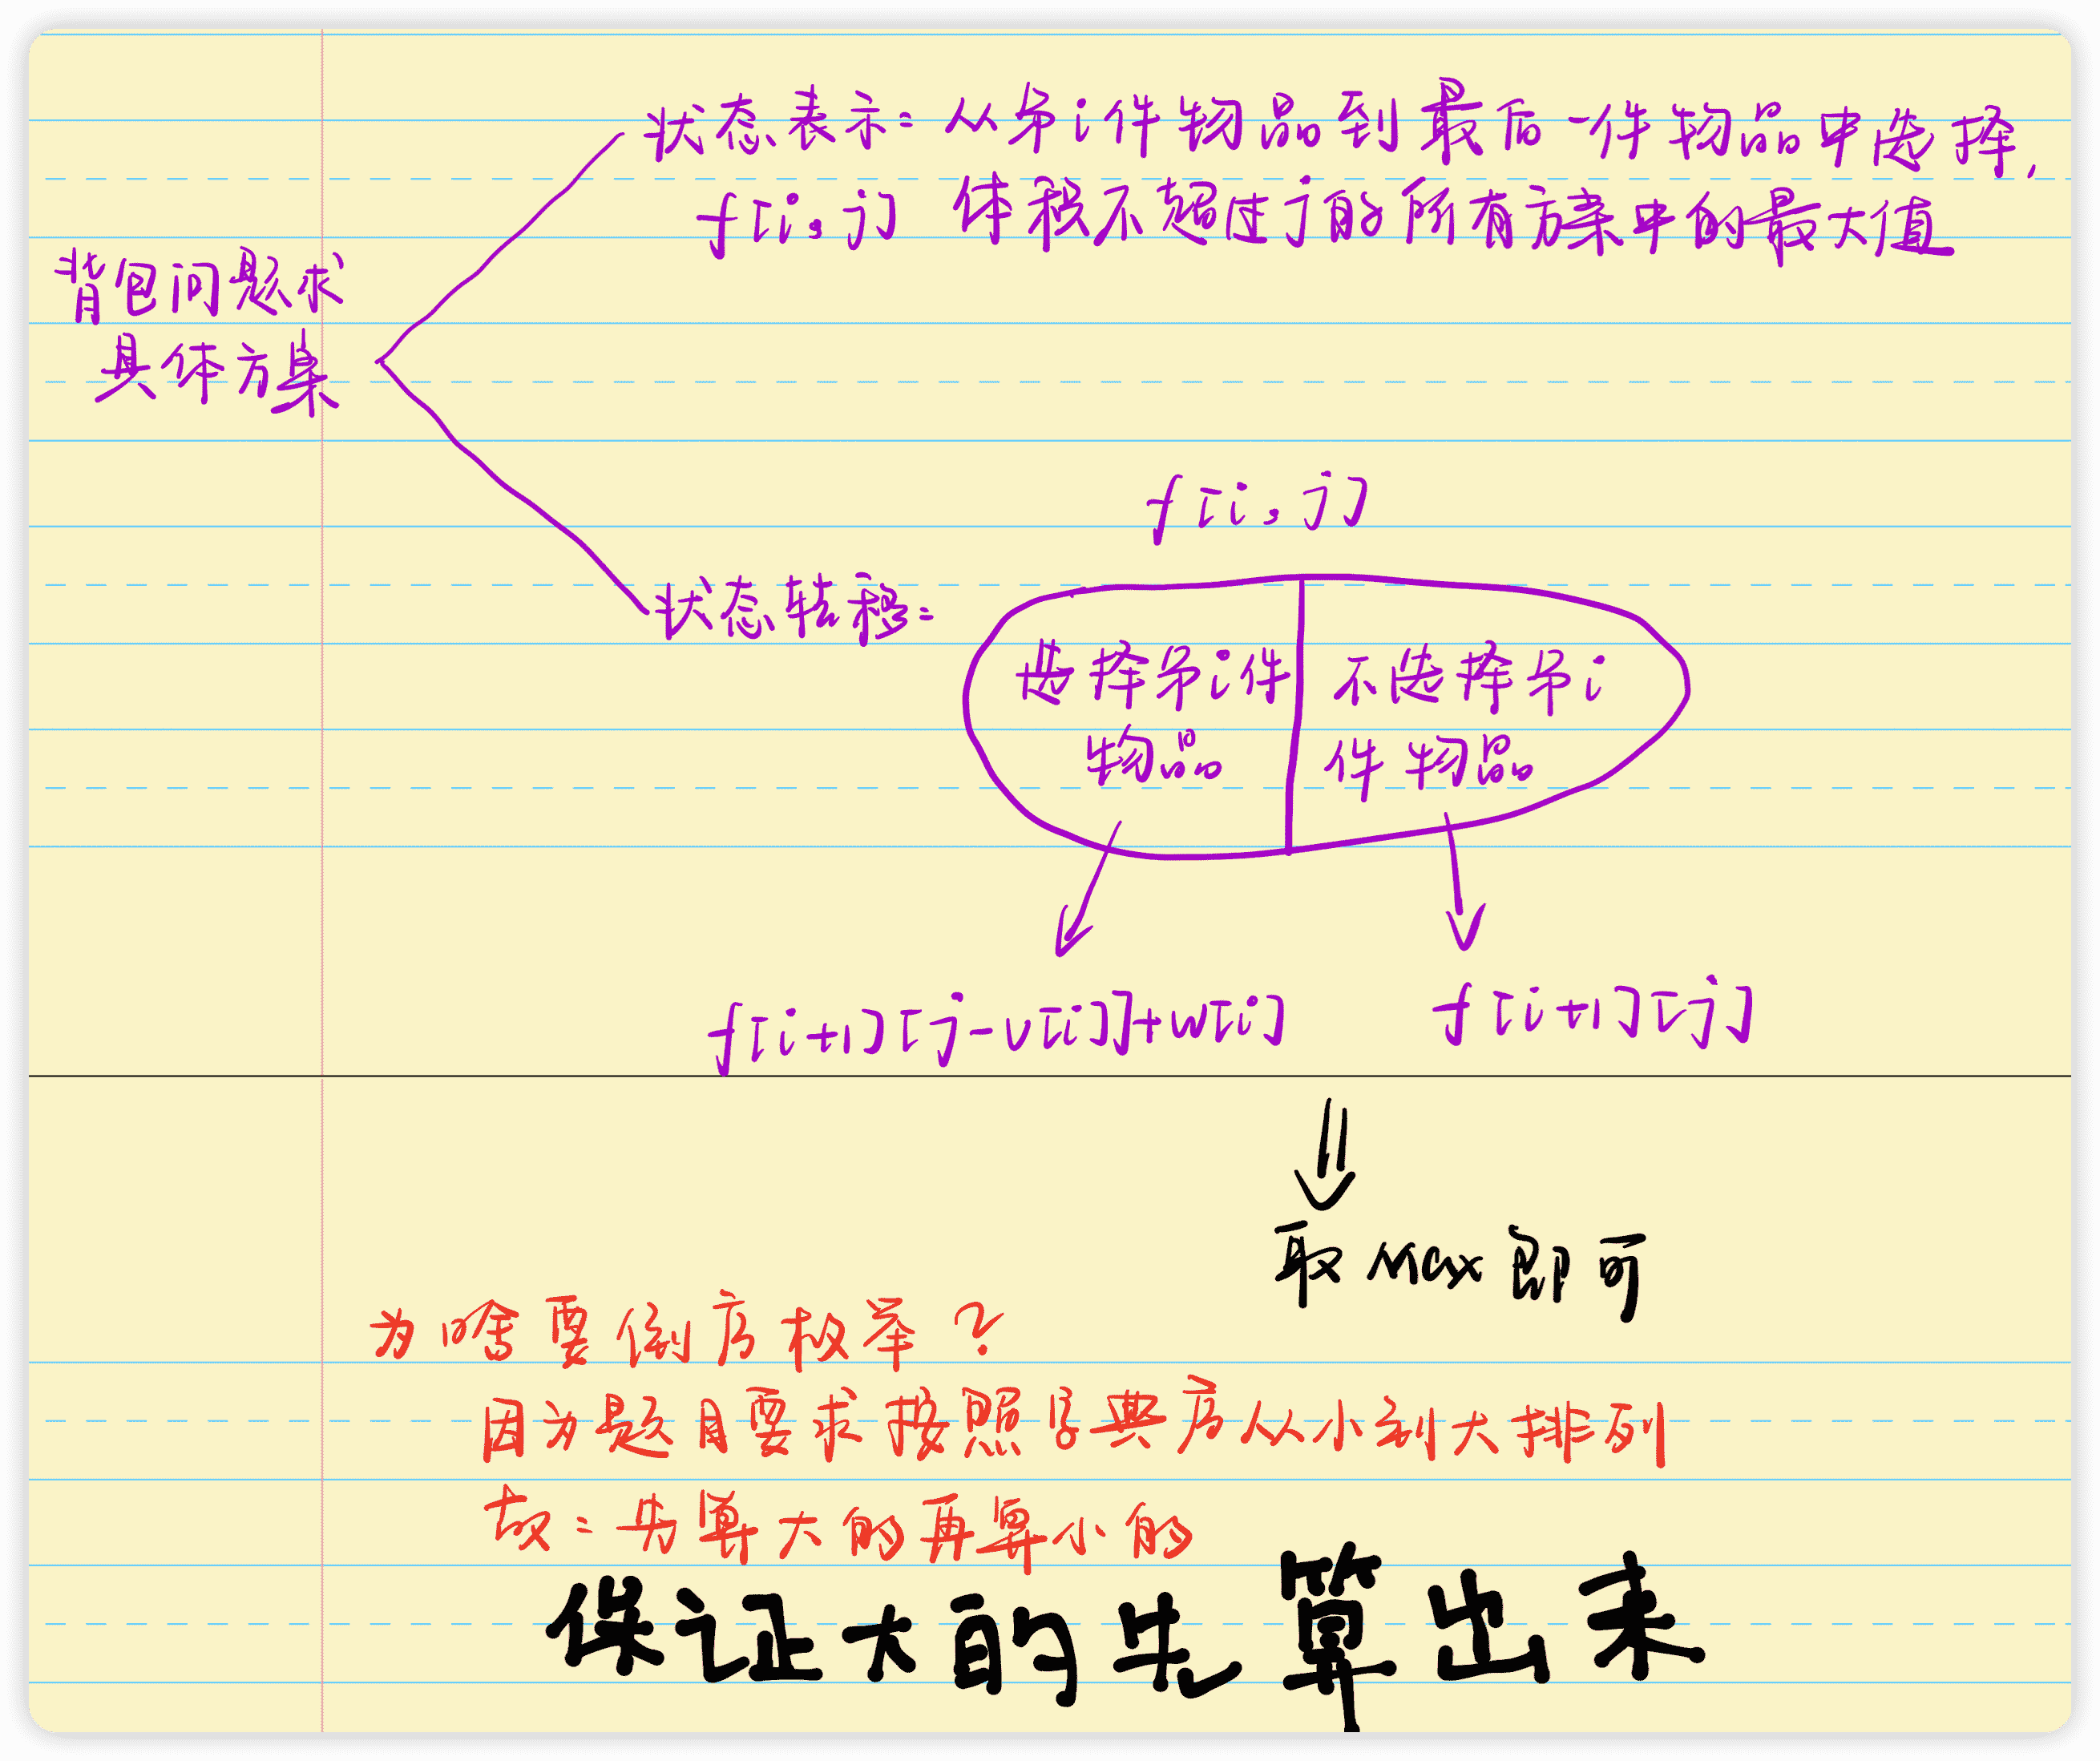 状态表示：从第i件物品到最后一件物品中选择，
f[i,j] 体积不超过j的所有方案中的最大值
背包问题求
具体方案
f[i,j]
状态转移：
选择第i件
物品
不选择第i
件物品
f[i+1][j-v[i]]+w[i]
f[i+1][j]
取max即可
为啥要倒序枚举？
因为题目要求按照字典序从小到大排列
故：先算大的再算小的
保证大的先算出来